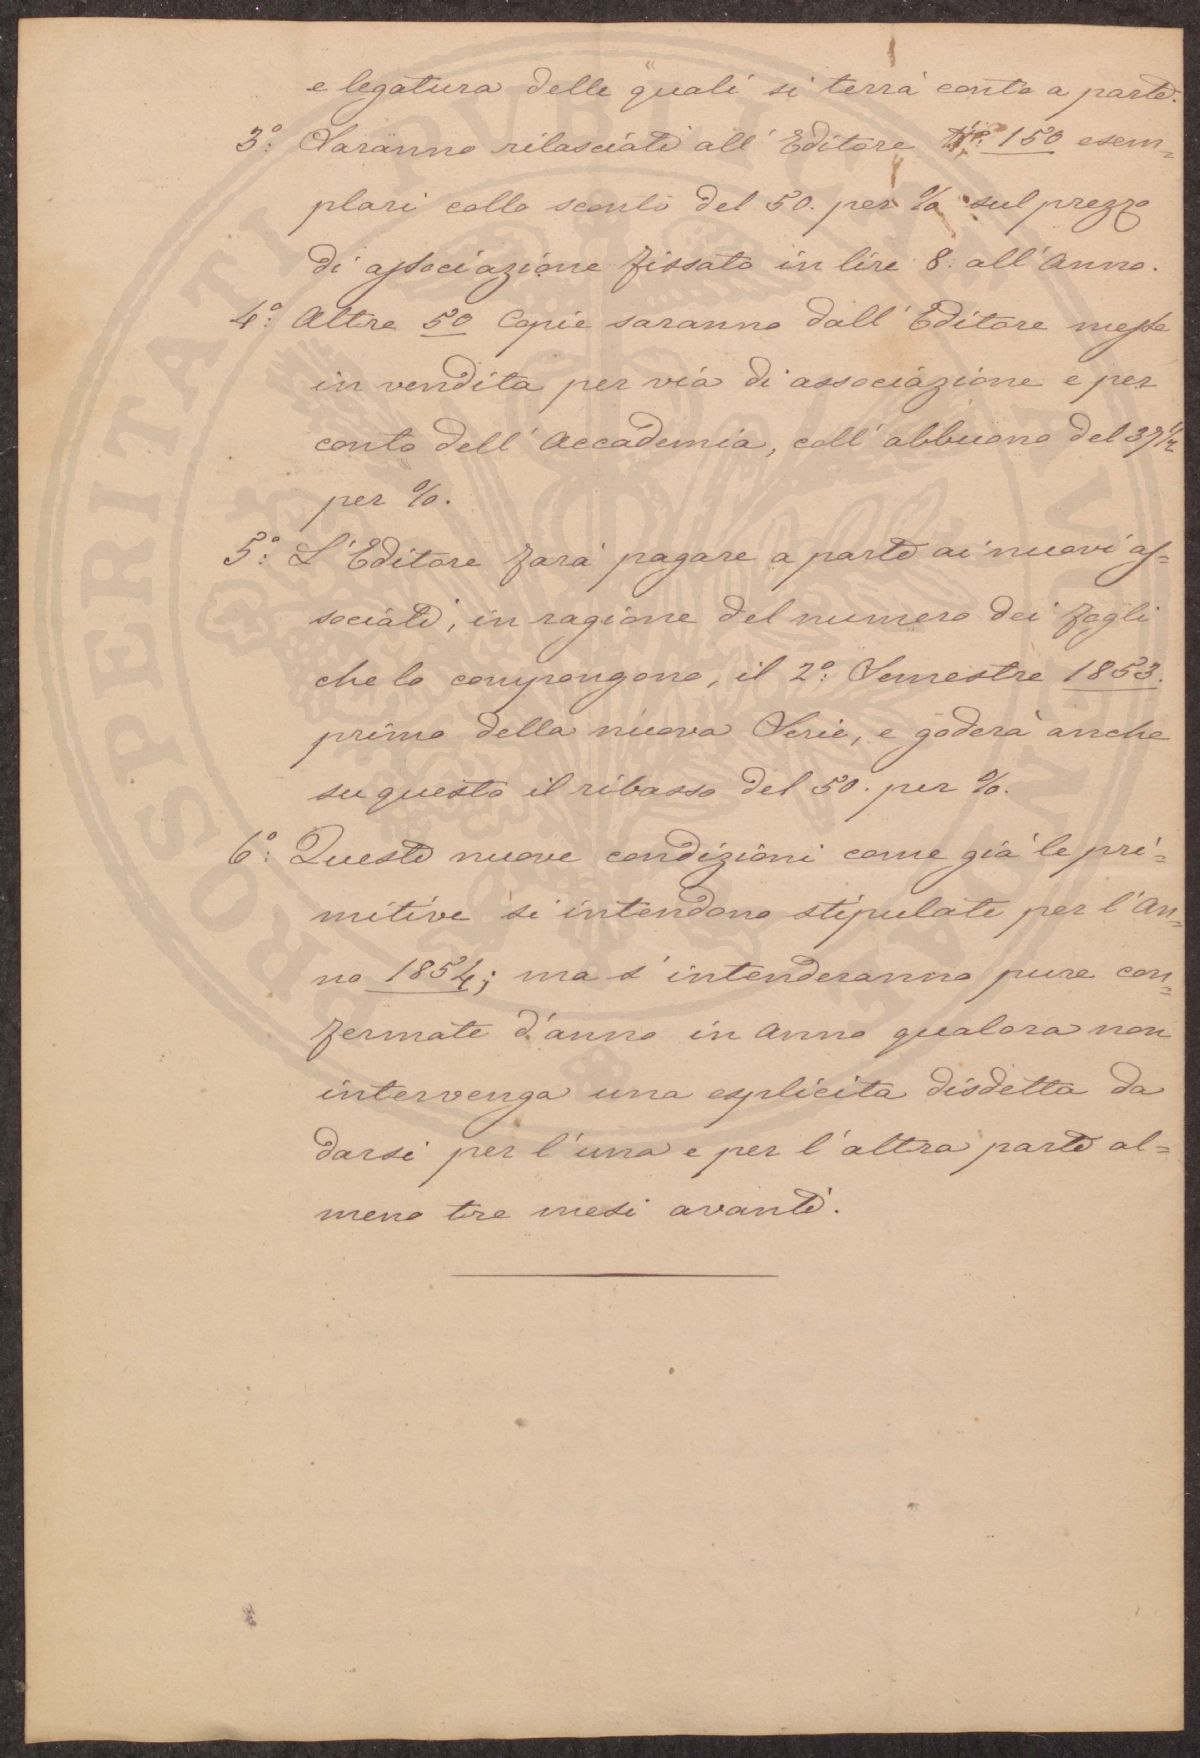 e legatura delle quali si terrà conto a parte.
3°: Saranno rilasciati all' Editore N°: 150 esem=
plari collo sconto del 50. per % sul prezzo
di associazione fissato in lire 8. all' Anno.
4°: Altre 50 Copie saranno dall' Editore messe
in vendita per via di associazione e per
conto dell' Accademia, coll' abbuono del 37 1/2
per %.
5°: L'Editore farà pagare a parte ai nuovi as=
sociati, in ragione del numero dei fogli
che lo compongono, il 2°: Semestre 1853.
primo della nuova Serie, e goderà anche
su questo il ribasso del 50. per %.
6°: Queste nuove condizioni come già le pri=
mitive si intendono stipulate per l'An=
no 1854; ma s' intenderanno pure con=
fermate d'anno in Anno qualora non
intervenga una esplicita disdetta da
darsi per l'una e per l'altra parte al=
meno tre mesi avanti.
PROSPERITATI PVBLICAE AVGENDAE